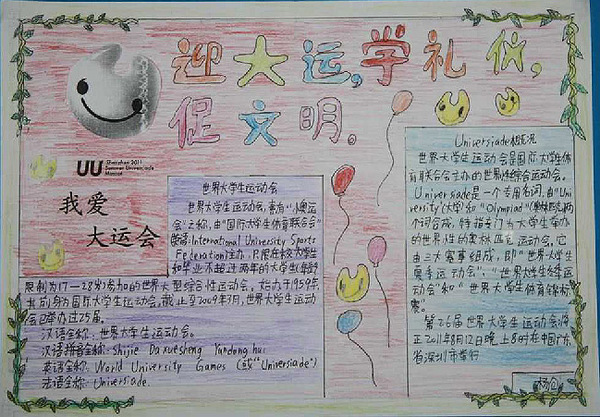 迎大运,学礼仪,
促文明。
UU Shenzhen 2011
Summer Universiade
Mascot
我爱
大运会
世界大学生运动会
世界大学生运动会,素有“小奥运
会”之称,由“国际大学生体育联合会”
International University Sports
Federation)主办,只限在校大学生
和毕业不超过两年的大学生(年龄
限制为17—28岁)参加的世界大型综合性运动会。始办于1959年,
其前身为国际大学生运动会。截止至2009年7月,世界大学生运动
会已举办过25届。
汉语全称:世界大学生运动会。
汉语拼音全称:Shijie Daxuesheng Yundong hui
英语全称:World University Games (或“Universiade”)
法语全称:Universiade
Universiade概况
世界大学生运动会是国际大学生体
育联合会主办的世界性综合运动会。
Universiade是一个专用名词,由“Uni-
versity(大学)”和“Olympiad”
两个词合成,特指专门为大学生举办
的世界性的奥林匹克运动会。它
由三大赛事组成,即“世界大学生
夏季运动会”、“世界大学生冬季运
动会”和“世界大学生体育锦标
赛。
第26届世界大学生运动会将
于2011年8月12日晚上8时在中国广东
省深圳市举行